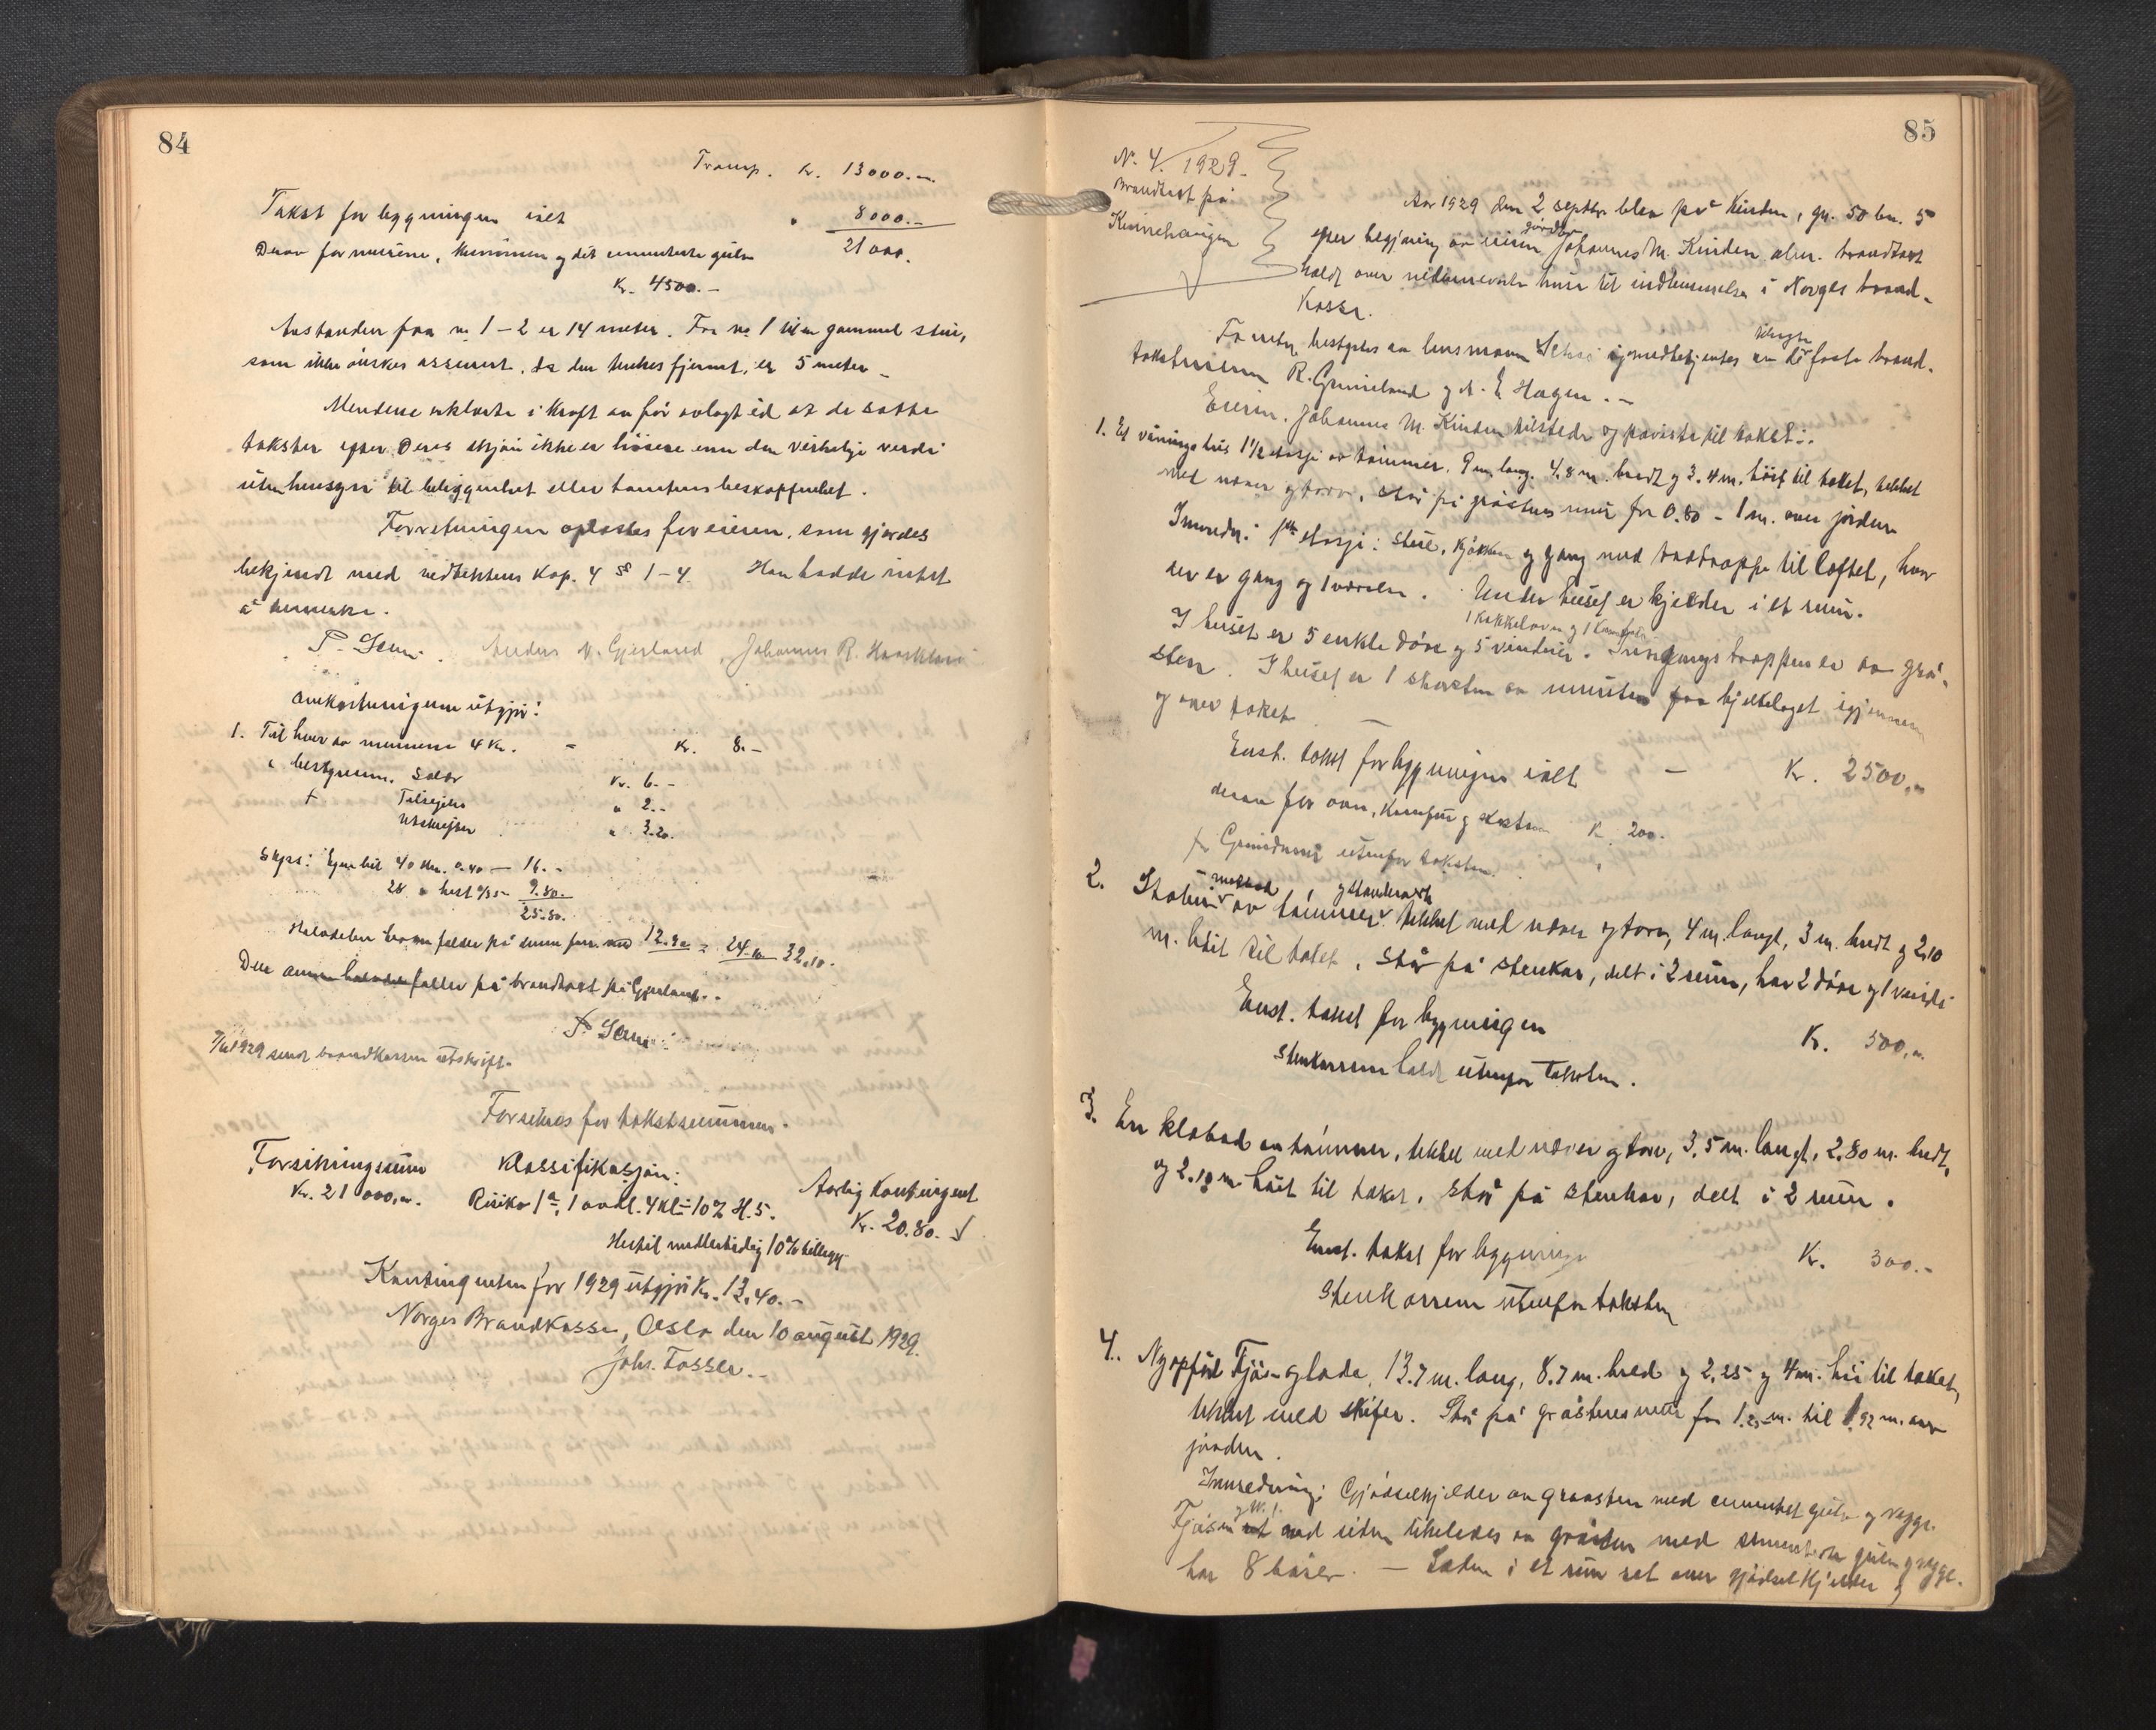 84
Transp. Kr. 13000.-
Takst for bygningen ialt " 8000.-
Derav for murene, kummen og det cementerte gulv 21000.
Kr. 4500.-
Avstanden fra nr. 1 - 2 er 14 meter. Fra nr. 1 til en gammel stue,
som ikke ønskes assurert, da den tenkes fjernet, er 5 meter -
Mendene erklærte i kraft av før avlagt ed at de satte
takster efter deres skjøn ikke er høiere enn den virkelige verdi
uten hensyn til beliggenhet eller tomtens beskaffenhet.
Forretningen oplæstes for eieren, som gjordes
bekjendt med vedtektens Kap. 4 §§ 1-4. Han hadde intet
å bemerke.
Anders N. Gjerland, Johannes R.
Omkostningene utgjør:
1. Til hver av mennene 4 Kr. - Kr. 8.-
" bestyreren. Salær Kr. 6.-
" 2.-
Utskrifter " 3.20.
Skyss: Egen bil 40 km. 0.40 - 16.-
28 " hest 9.80.
25.80.
Halvdelen herav falder på denne forr. med 12.90 = 24.10 32.10.
Den annen halvdel faller på brandtakst på Gjerland.
1929 sendt brandkassen utskrift.
Forsikres for takstsummen.
Forsikringssum Klassifikasjon: Aarlig Kontingent
Kr. 21000,00. Risiko 1a, 1 avdl. 4 kl. = 10% H.5. Kr. 20.80.
Hertil midlertidig 10% tillegg
Kontingenten for 1929 utgjør Kr. 13.40.-
Norges Brandkasse, Oslo den 10 august 1929.
Johs. Fosser.
85
Nr. 4. 1929.
Brandtakst på
Kinnehaugen
Aar 1929 den 2 septbr. blev på Kinden, gn. 50 bn. 5
efter begjæring av eieren Johannes M. Kinden alm. brandtakst
holdt over nedennevnte huse til indlemmelse i Norges brand-
kasse.
tilsagte
Forretn. bestyrtes av lensmann og medbetjentes av de faste brand-
takstmenn R. Grimeland og A. E. Hagen.-
Eieren, Johannes M. Kinden tilstede og påviste til takst:
1. Et våningshus 1 1/2 etasje av tømmer, 9 m. langt, 4.8 m. bredt og 3.4 m. høit til taket, tekket
med never og torv, står på gråstens mur fra 0.80 - 1 m. over jorden
Innredn: 1ste etasje: stue, kjøkken og gang med tretrappe til loftet, hvor
der er gang og 1 værelse. Under huset er kjelder i et rum.
1 kakkelovn og 1 komfyr
I huset er 5 enkle døre og 5 vinduer. Inngangs trappen er av grå-
sten. I huset er 1 skorsten av mursten fra bjelkelaget igjennem
og over taket. -
Enst. takst for bygningen ialt - Kr. 2500,00
derav for ovn, komfyr og skorsten Kr. 200.
Grundmur utenfor taksten.
2. Stabur av tømmer tekket med never og torv, 4 m. langt, 3 m. bredt og 2,10
m. høit til taket, står på stenkar, delt i 2 rum, har 2 døre og 1 vindu
Enst. takst for bygningen Kr. 500,00.
Stenkarrene holdt utenfor taksten.
3. En klebod av tømmer, tekket med never og torv, 3,5 m. langt, 2.80 m. bredt,
og 2.10 m. høit til taket, står på stenkar, delt i 2 rum.
Enst. takst for bygningen Kr. 300.-
Stenkarrene utenfor taksten
4. Nyopført Fjøs og lade, 13.7 m. lang, 8.7 m. bred og 2.25 og 4 m. høi til taket,
tekket med skifer. Står på gråstensmur fra 1.25 m. til 1.92 m. over
jorden.
Innredning: Gjødselkjelder av graasten med cementert gulv og vegge.
Fjøsen ved siden likeledes av gråsten med cementerte gulv og vegge.
har 8 båser. - Laden i et rum ret over gjødselkjelder og